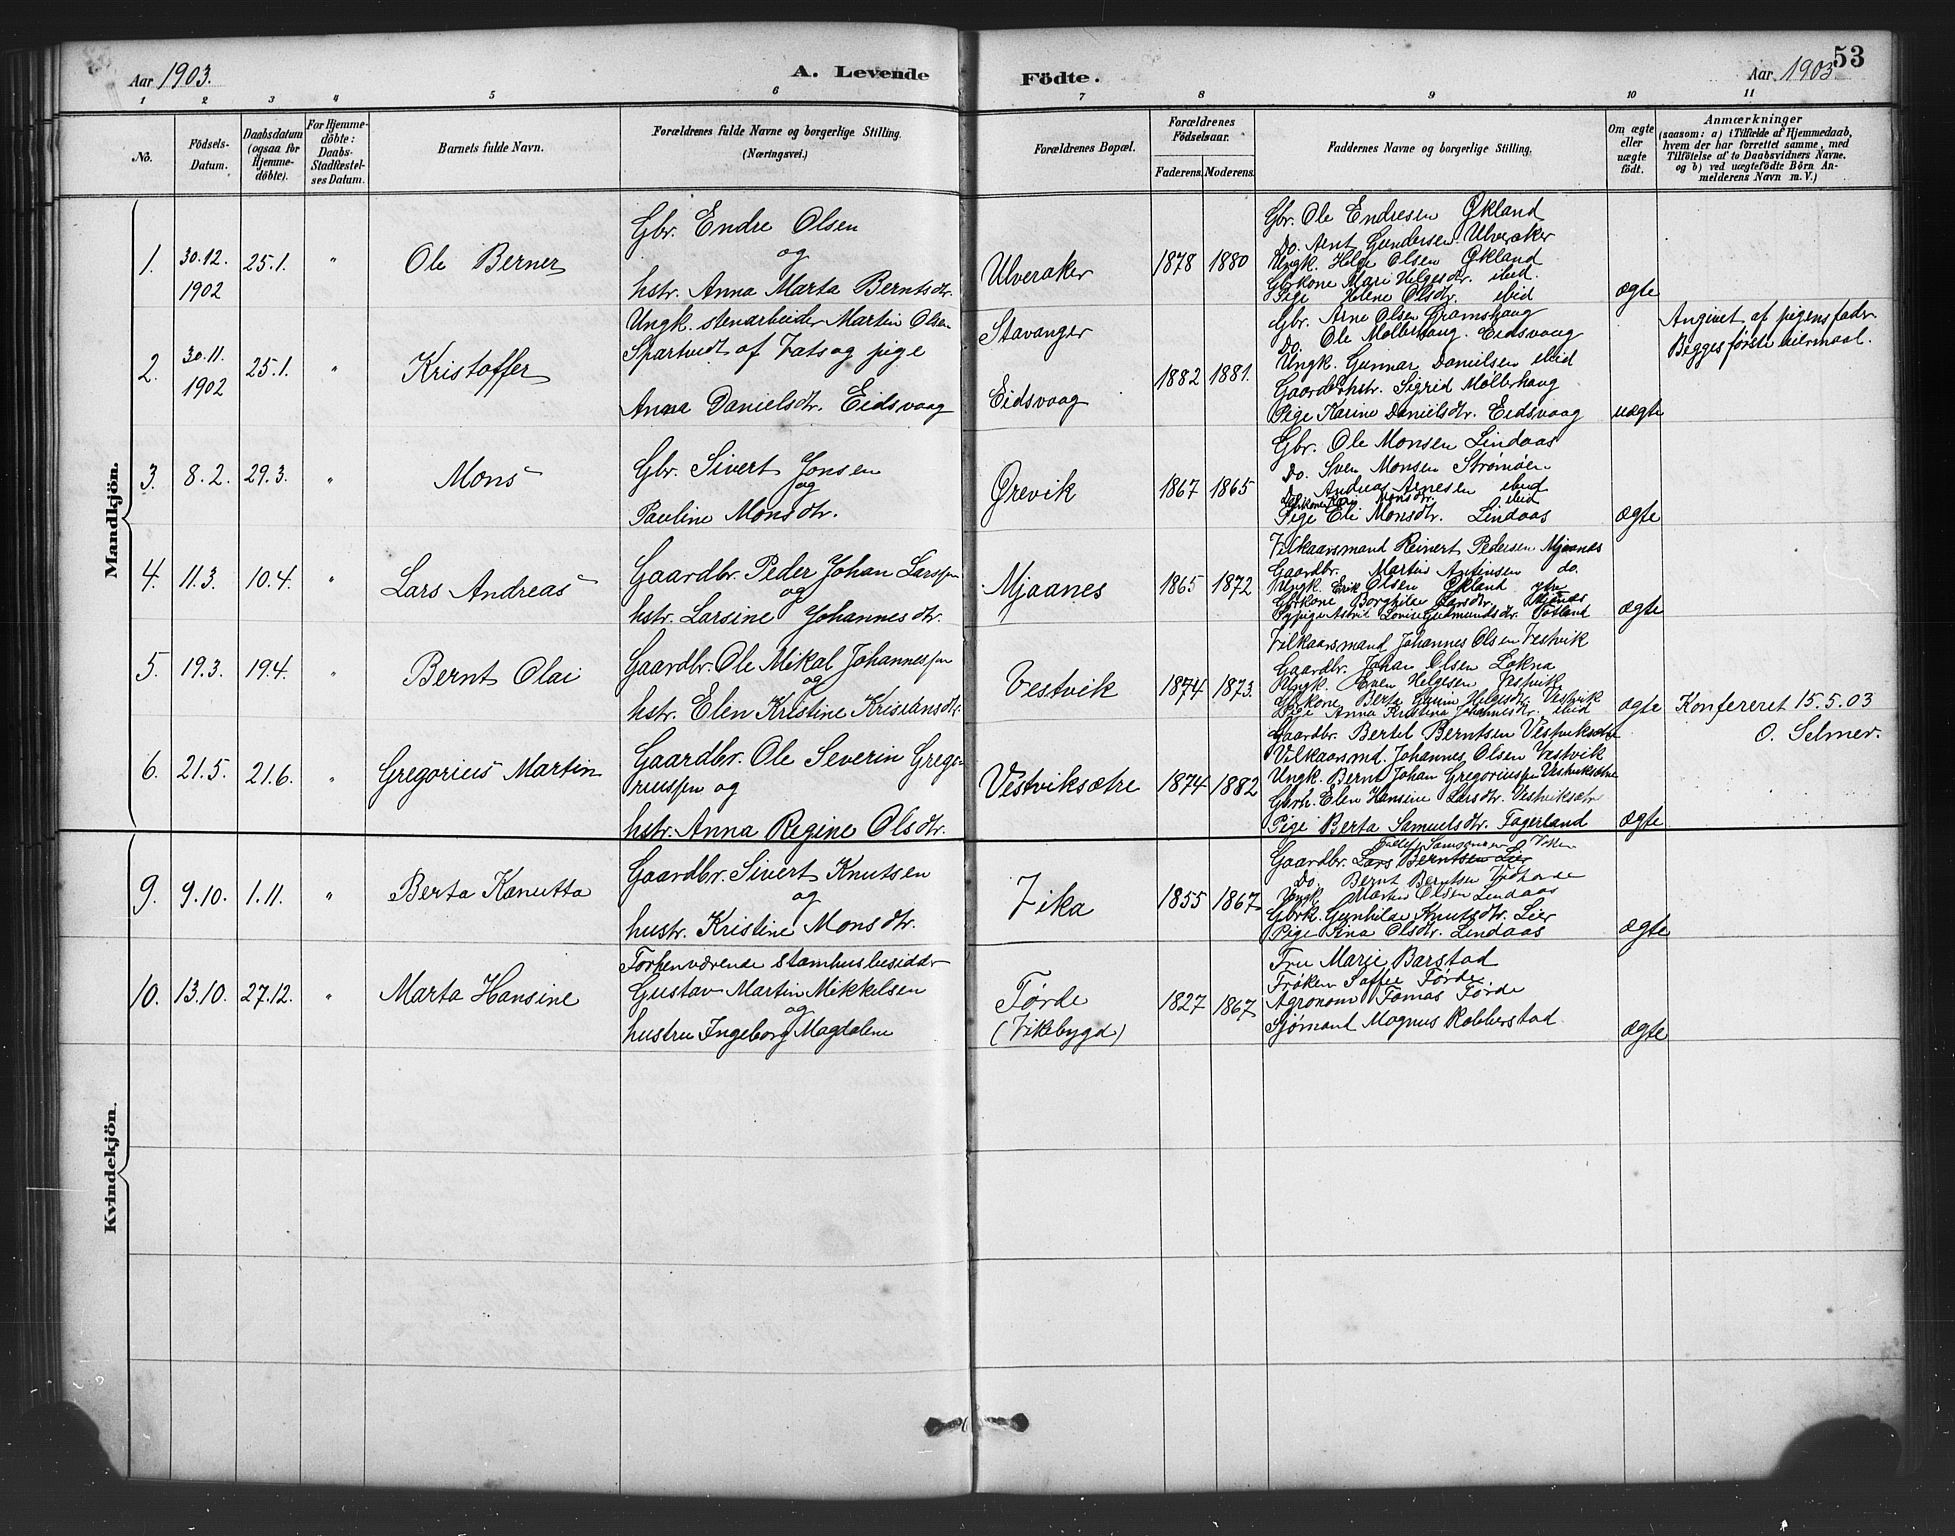 Aar 1903.
A. Levende Födte.
Aar 1903
53
1 2 3 4 5 6 7 8 9 10 11
No.
Födsels-Datum.
Daabsdatum (ogsaa for Hjemme-döbte).
For Hjemme-döbte: Daabs-Stadfæstel-ses Datum.
Barnets fulde Navn.
Forældrenes fulde Navne og borgerlige Stilling.
(Næringsvei.)
Forældrenes Bopæl.
Forældrenes Födselsaar.
Faderens. Moderens.
Faddernes Navne og borgerlige Stilling.
Om ægte eller uægte födt.
Anmærkninger
(saasom: a) i Tilfælde af Hjemmedaab,
hvem der har forrettet samme, med
Tilföielse af to Daabsvidners Navne.
og b) ved uægtefödte Börn An-
melderens Navn m. V.)
Mandkjön.
1. 30.12. 1902 25.1. " Ole Berner
Gbr. Endre Olsen
og
hstr. Anna Marta Berntsdtr.
Ulveraker 1878 1880
Gbr. Ole Endresen Økland
Do. Arnt Gundersen Ulveraker
Ungk. Helge Olsen Økland
Gbrkone Mari Helgesdtr. ibid.
Pige Helene Olsdtr. ibid
ægte
2. 30.11. 1902 25.1. " Kristoffer
Ungk. stenarbeider Martin Olsen
Spartvedt af Vats og pige
Anna Danielsdtr. Eidsvaag
Stavanger
Eidsvaag 1882 1881.
Gbr. Arne Olsen Framshaug
Do. Ole Møllerhaug. Eidsvaag
Ungk. Gunnar Danielsen ibid
Gaardbrhstr. Sigrid Møllerhaug
Pige Karine Danielsdtr. Eidsvaag
uægte
Angivet af pigens fader
Begges første leiermaal.
3. 8.2. 29.3. " Mons
Gbr. Sivert Jonsen
og
Pauline Monsdtr.
Ørevik 1867 1865
Gbr. Ole Monsen Lindaas
Do. Sven Monsen Strømøen
Do. Andreas Arnesen ibid
Gbrkone Kari Monsdtr. ibid
Pige Eli Monsdtr. Lindaas
ægte
4. 11.3. 10.4. " Lars Andreas
Gaardbr. Peder Johan Larssen
og
hstr. Larsine Johannesdtr.
Mjaanes 1865 1872
Vilkaarsmand Reinert Pedersen Mjaanes
Gaardbr. Martin Antinsen do.
Ungk. Erik Olsen Økland
Gbrkone Borghilde Larsdtr. Mjaanes
Gudmundsdtr. Totland
ægte
5. 19.3. 19.4. " Bernt Olai
Gaardbr. Ole Mikal Johannessen
og
hstr. Elen Kristine Kristiansdtr.
Vestvik 1874 1873.
Vilkaarsmand Johannes Olsen Vestvik
Gaardbr. Johan Olsen Lokna
Ungk. Even Helgesen Vestvik
Gbrkone Berta Helgesdtr. Vestvik
Pige Anna Kristina Johannesdtr. ibid
ægte
Konfereret 15.5.03
O. Selmer.
6. 21.5. 21.6. " Gregorius Martin
Gaardbr. Ole Severin Grego-
riussen og
hstr. Anna Regine Olsdtr.
Vestviksætre 1874 1882
Gaardbr. Bertil Berntsen Vestviksætre
Vilkaarsmd. Johannes Olsen Vestvik
Ungk. Bernt Johan Gregoriussen Vestviksætre
Gbrh. Elen Hansine Larsdtr. Vestviksætre
Pige Berta Samuelsdtr. Fagerland
ægte
Kvindekjön.
9. 9.10. 1.11. " Berta Kanutta
Gaardbr. Sivert Knutsen
og
hustr. Kristine Monsdtr.
Vika 1855 1867
Gaardbr. Lars Berntsen Lier
Do. Bernt Berntsen
Ungk. Martin Olsen Lindaas
Gbrk. Gunhilde Knutsdtr. Lier
Pige Sina Olsdtr. Lindaas
ægte
10. 13.10. 27.12. " Marta Hansine
Forhenværende stamhusbesidder
Gustav Martin Mikkelsen
og
hustru Ingeborg Magdalene
Førde
(Vikebygd) 1827 1867
Fru Marie Barstad
Frøken Soffie Førde
Agronom Tomas Førde
Sjømand Magnus Robberstad
ægte